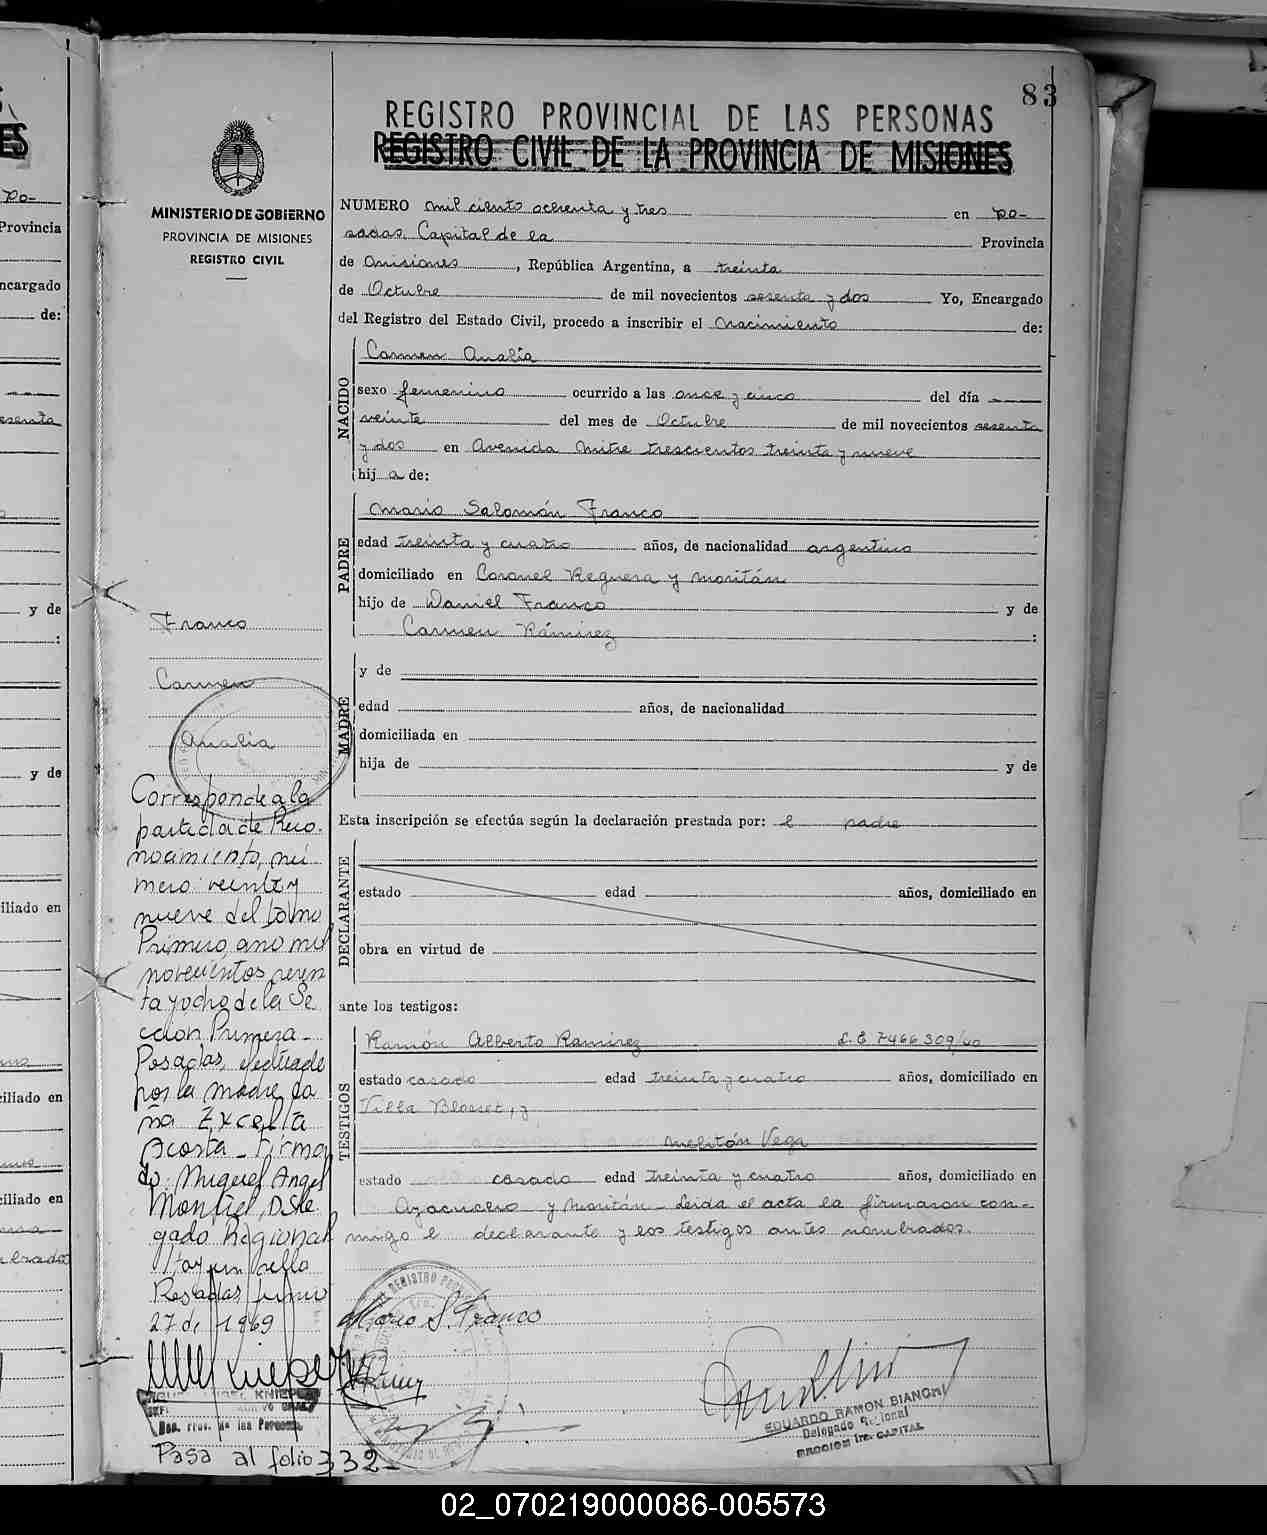 83
REGISTRO PROVINCIAL DE LAS PERSONAS
REGISTRO CIVIL DE LA PROVINCIA DE MISIONES
MINISTERIO DE GOBIERNO
PROVINCIA DE MISIONES
REGISTRO CIVIL
NUMERO mil ciento ochenta y tres en Po-
sadas, Capital de la Provincia
de Misiones, República Argentina, a treinta
de Octubre de mil novecientos sesenta y dos Yo, Encargado
del Registro del Estado Civil, procedo a inscribir el Nacimiento de:
NACIDO
Carmen Analia
sexo femenino ocurrido a las once y cinco del día
veinte del mes de Octubre de mil novecientos sesenta
y dos en Avenida Mitre trescientos treinta y nueve
hij a de:
PADRE
Mario Salomón Franco
edad treinta y cuatro años, de nacionalidad argentino
domiciliado en Coronel Reguera y Moritán
hijo de Daniel Franco y de
Carmen Rámirez :
MADRE
y de
edad años, de nacionalidad
domiciliada en
hija de y de
Esta inscripción se efectúa según la declaración prestada por: el padre
DECLARANTE
estado edad años, domiciliado en
obra en virtud de
ante los testigos:
TESTIGOS
Ramón Alberto Ramirez L.E 7466309/40
estado casado edad treinta y cuatro años, domiciliado en
Villa Blosset, y
Melitón Vega
estado casado edad treinta y cuatro años, domiciliado en
Ayacucho y Moritán - Leida el acta la firmaron con-
migo el declarante y los testigos antes nombrados.
Mario S. Franco
EDUARDO RAMON BIANCHI
Delegado Regional
SECCION 1ra. CAPITAL
Franco
Carmen
Analia
Corresponde a la
partida de Reco-
nocimiento, nú
mero veinte y
nueve del tomo
Primero, año mil
novecientos sesen
ta y ocho de la Se
ccion, Primera -
Posadas, efectuado
por la madre, do
ña Excelta
Acosta - Firma
do: Miguel Angel
Montiel, Dele
gado Regional
Hay un sello
Posadas, junio
27 de 1969
Pasa al folio 332-
02_070219000086-005573